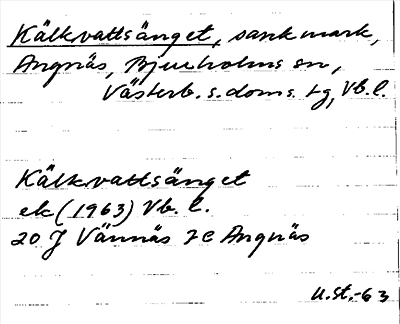 Kälkvattsänget, sank mark,
Angnäs, Bjurholms sn,
Västerb. s. doms. tg, Vb. l.
Kälkvattsänget
ek (1963) Vb. l.
20 J Vännäs 7e Angnäs
U.St.-63